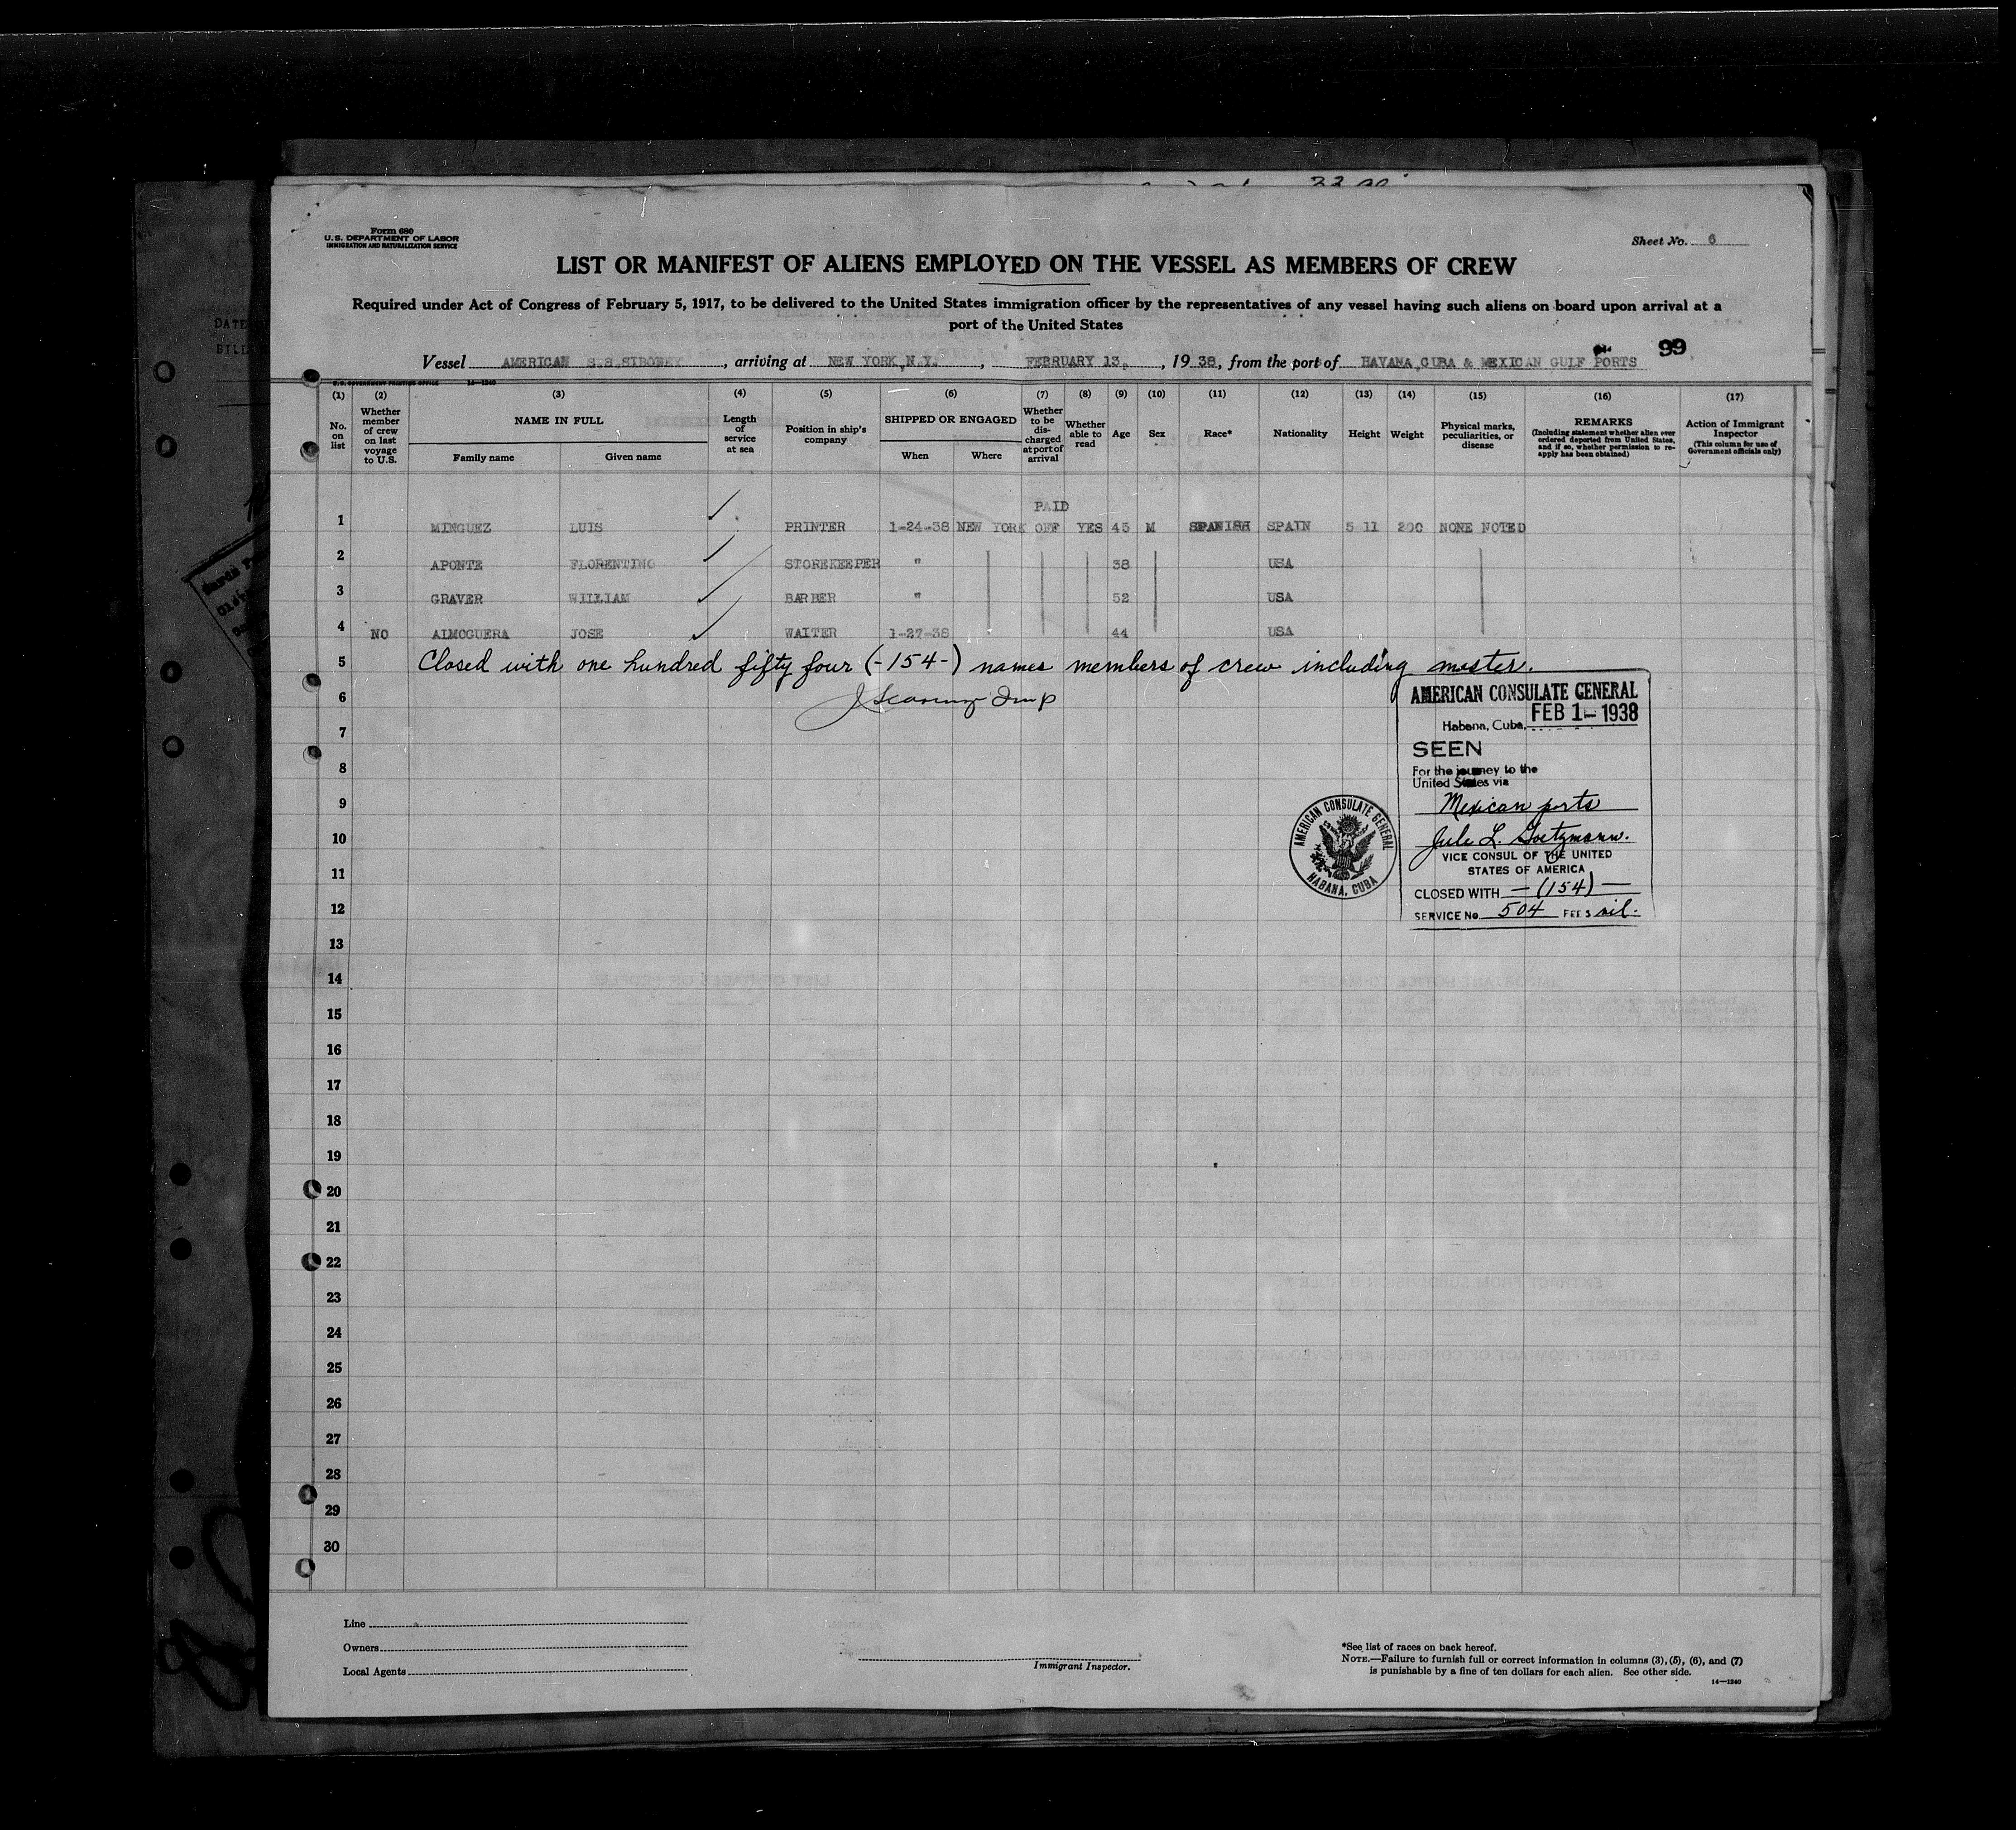 Form 680
U.S. DEPARTMENT OF LABOR
IMMIGRATION AND NATURALIZATION SERVICE
Sheet No. 6
LIST OR MANIFEST OF ALIENS EMPLOYED ON THE VESSEL AS MEMBERS OF CREW
Required under Act of Congress of February 5, 1917, to be delivered to the United States immigration officer by the representatives of any vessel having such aliens on board upon arrival at a
port of the United States
99
Vessel AMERICAN S.S.SIBONEY, arriving at NEW YORK,N.Y., FEBRUARY 13, 1938, from the port of HAVANA,CUBA & MEXICAN GULF PORTS
U.S. GOVERNMENT PRINTING OFFICE 14—1240
(1) (2) (3) (4) (5) (6) (7) (8) (9) (10) (11) (12) (13) (14) (15) (16) (17)
No. on list
Whether member of crew on last voyage to U.S.
NAME IN FULL
Family name Given name
Length of service at sea
Position in ship's company
SHIPPED OR ENGAGED
When Where
Whether to be discharged at port of arrival
Whether able to read
Age
Sex
Race*
Nationality
Height
Weight
Physical marks, peculiarities, or disease
REMARKS
(Including statement whether alien ever ordered deported from United States, and if so, whether permission to re-apply has been obtained)
Action of Immigrant Inspector
(This column for use of Government officials only)
PAID
1 MINGUEZ LUIS PRINTER 1-24-38 NEW YORK OFF YES 45 M SPANISH SPAIN 5 11 200 NONE NOTED
2 APONTE FLORENTINO STOREKEEPER " 38 USA
3 GRAVER WILLIAM BARBER " 52 USA
4 NO ALMOGUERA JOSE WAITER 1-27-38 44 USA
5 Closed with one hundred fifty four (-154-) names members of crew including master.
6
7
8
9
10
11
12
13
14
15
16
17
18
19
20
21
22
23
24
25
26
27
28
29
30
AMERICAN CONSULATE GENERAL
Habana, Cuba, FEB 1 - 1938
SEEN
For the journey to the
United States via
Mexican ports
Jule L. Goetzmann.
VICE CONSUL OF THE UNITED
STATES OF AMERICA
CLOSED WITH — (154) —
SERVICE No. 504 FEES nil.
AMERICAN CONSULATE GENERAL
HABANA, CUBA
Line
Owners
Local Agents
Immigrant Inspector.
*See list of races on back hereof.
NOTE.—Failure to furnish full or correct information in columns (3), (5), (6), and (7)
is punishable by a fine of ten dollars for each alien. See other side.
14—1240
DATE
BILL